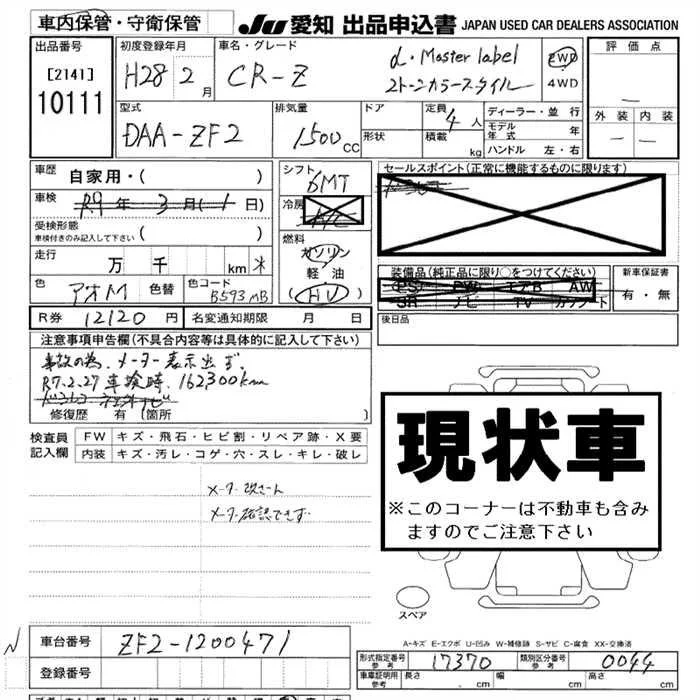 車内保管・守衛保管 JU 愛知 出品申込書 JAPAN USED CAR DEALERS ASSOCIATION
出品番号 初度登録年月 車名・グレード 評価点
[2141]
10111
H28 2月 CR-Z α・Master label
2トーンカラースタイル
2WD
4WD
外装 内装
型式 排気量 ドア 定員 ディーラー・並行
DAA-ZF2 1500cc 4人
形状 積載 kg
モデル年式 年
ハンドル 左・右
車歴 自家用・( )
シフト 6MT
セールスポイント(正常に機能するものに限ります)
車検 R9年3月( 1日)
冷房 A/C
受検形態
車検付きのみ記入して下さい ( )
燃料
ガソリン
軽油
(HV)
走行 万 千 km *
装備品(純正品に限り○をつけてください) 新車保証書
PS PW エアB AW
SR ナビ TV カセット
有・無
色 アオM 色替 色コード B593MB
R券 12120円 名変通知期限 月 日 後日品
注意事項申告欄(不具合内容等は具体的に記入して下さい)
事故の為、メーター表示出ず、
R7.2.27車検時、162300km
修復歴 有 〔箇所 〕
検査員記入欄
FW キズ・飛石・ヒビ割・リペア跡・X要
内装 キズ・汚レ・コゲ・穴・スレ・キレ・破レ
メータ改ざん
メータ確認できず
現状車
※このコーナーは不動車も含み
ますのでご注意下さい
スペア
A-キズ E-エクボ U-凹み W-補修跡 S-サビ C-腐食 XX-交換済
車台番号 ZF2-1200471
登録番号
形式指定番号 参考 17370 類別区分番号 参考 0044
車車証明用 参考 長さ cm 幅 cm 高さ cm